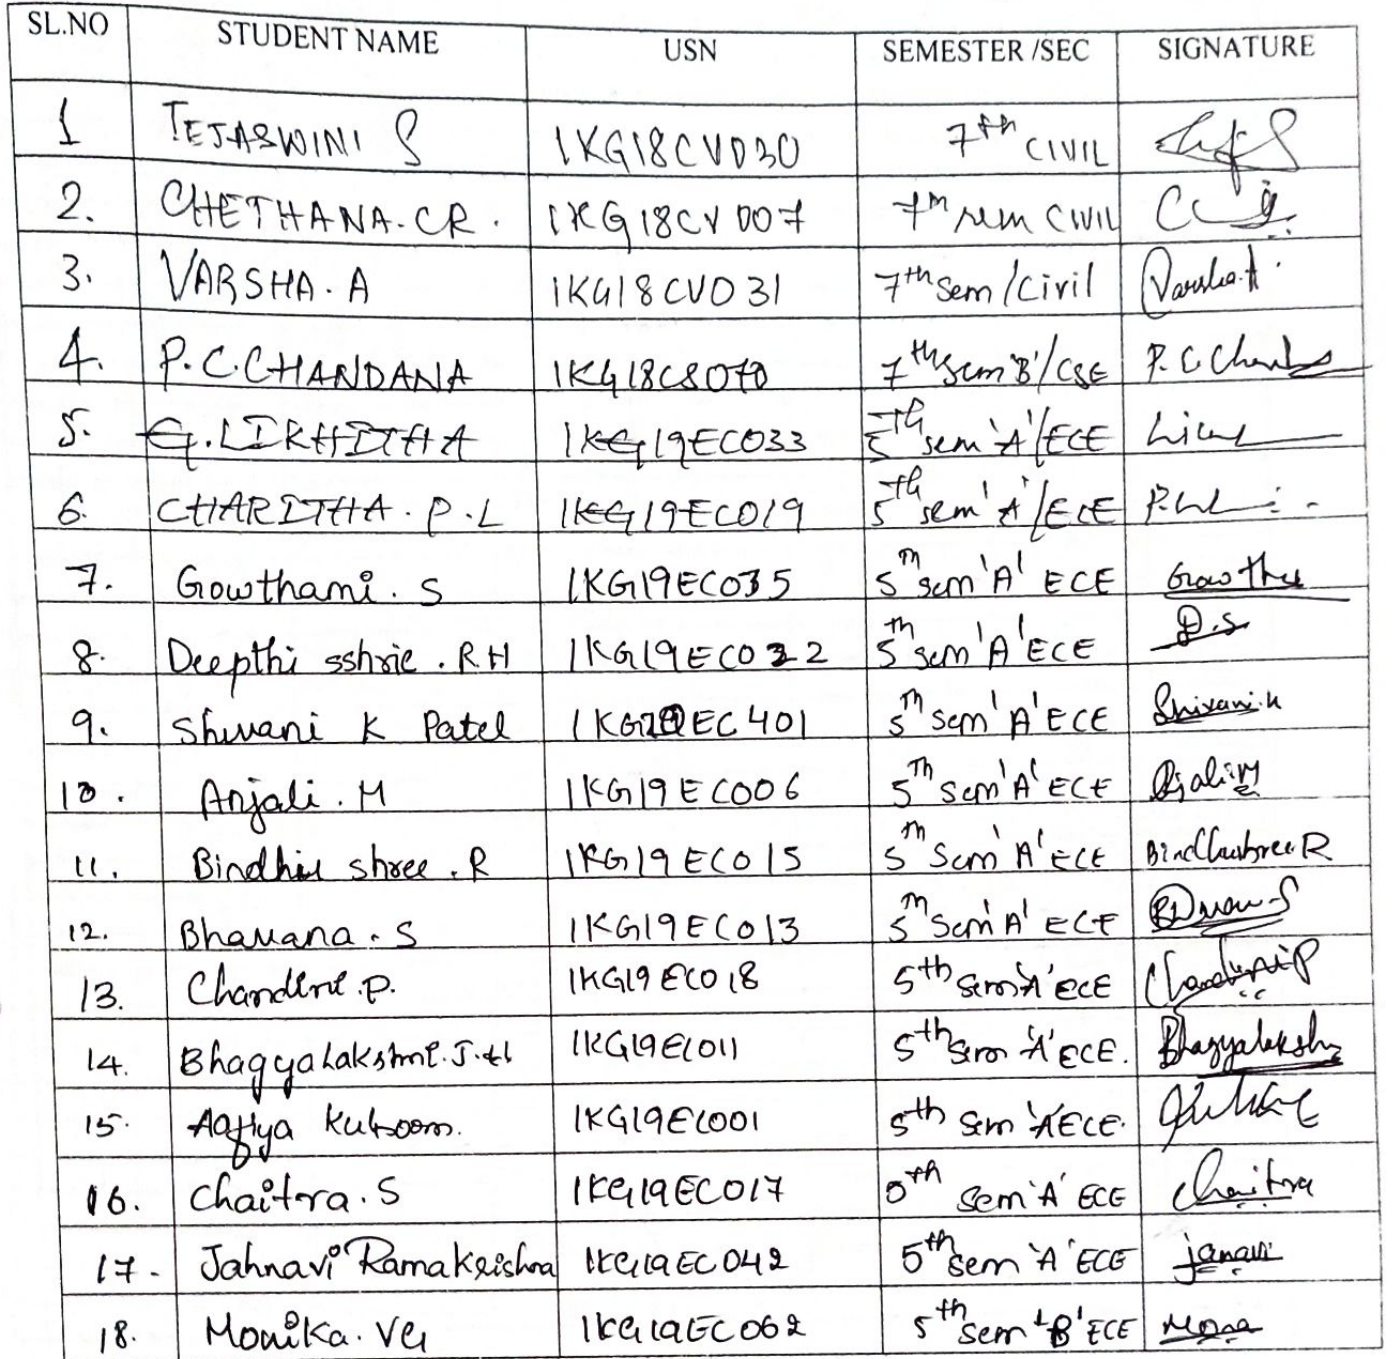 SL.NO STUDENT NAME USN SEMESTER /SEC SIGNATURE
1 TEJASWINI S 1KG18CV030 7th CIVIL
2. CHETHANA.CR. 1KG18CV007 7th sem CIVIL
3. VARSHA.A 1KG18CV031 7th sem/Civil Varsha.A
4. P.C.CHANDANA 1KG18CS070 7th sem 'B'/CSE P.C Chand
5. G.LIKHITHA 1KG19EC033 5th sem 'A'/ECE
6. CHARITHA.P.L 1KG19EC019 5th sem 'A'/ECE
7. Gowthami.S 1KG19EC035 5th sem 'A' ECE Gowthu
8. Deepthi sshrie.RH 1KG19EC022 5th sem 'A' ECE D.S
9. Shivani K Patel 1KG20EC401 5th sem 'A' ECE Shivani.K
10. Anjali.M 1KG19EC006 5th sem 'A' ECE
11. Bindhu shree.R 1KG19EC015 5th Sem 'A' ECE Bindhushree.R
12. Bhavana.S 1KG19EC013 5th Sem 'A' ECE
13. Chandini.P. 1KG19EC018 5th Sem 'A' ECE Chandini P
14. BhagyaLakshmi.J.H 1KG19EC011 5th Sem 'A' ECE. Bhagyalakshmi
15. Aqfiya Kulsoom. 1KG19EC001 5th Sem 'A' ECE.
16. Chaitra.S 1KG19EC017 5th Sem 'A' ECE Chaitra
17. Jahnavi Ramakrishna 1KG19EC042 5th Sem 'A' ECE janavi
18. Monika.VG 1KG19EC062 5th Sem 'B' ECE Mona